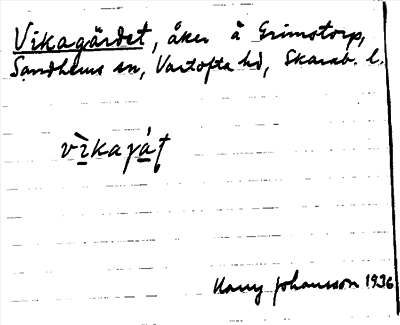 Vikagärdet, åker å Grimstorp,
Sandhems sn, Vartofta hd, Skarab. l.
vìkaγát
Harry Johansson 1936